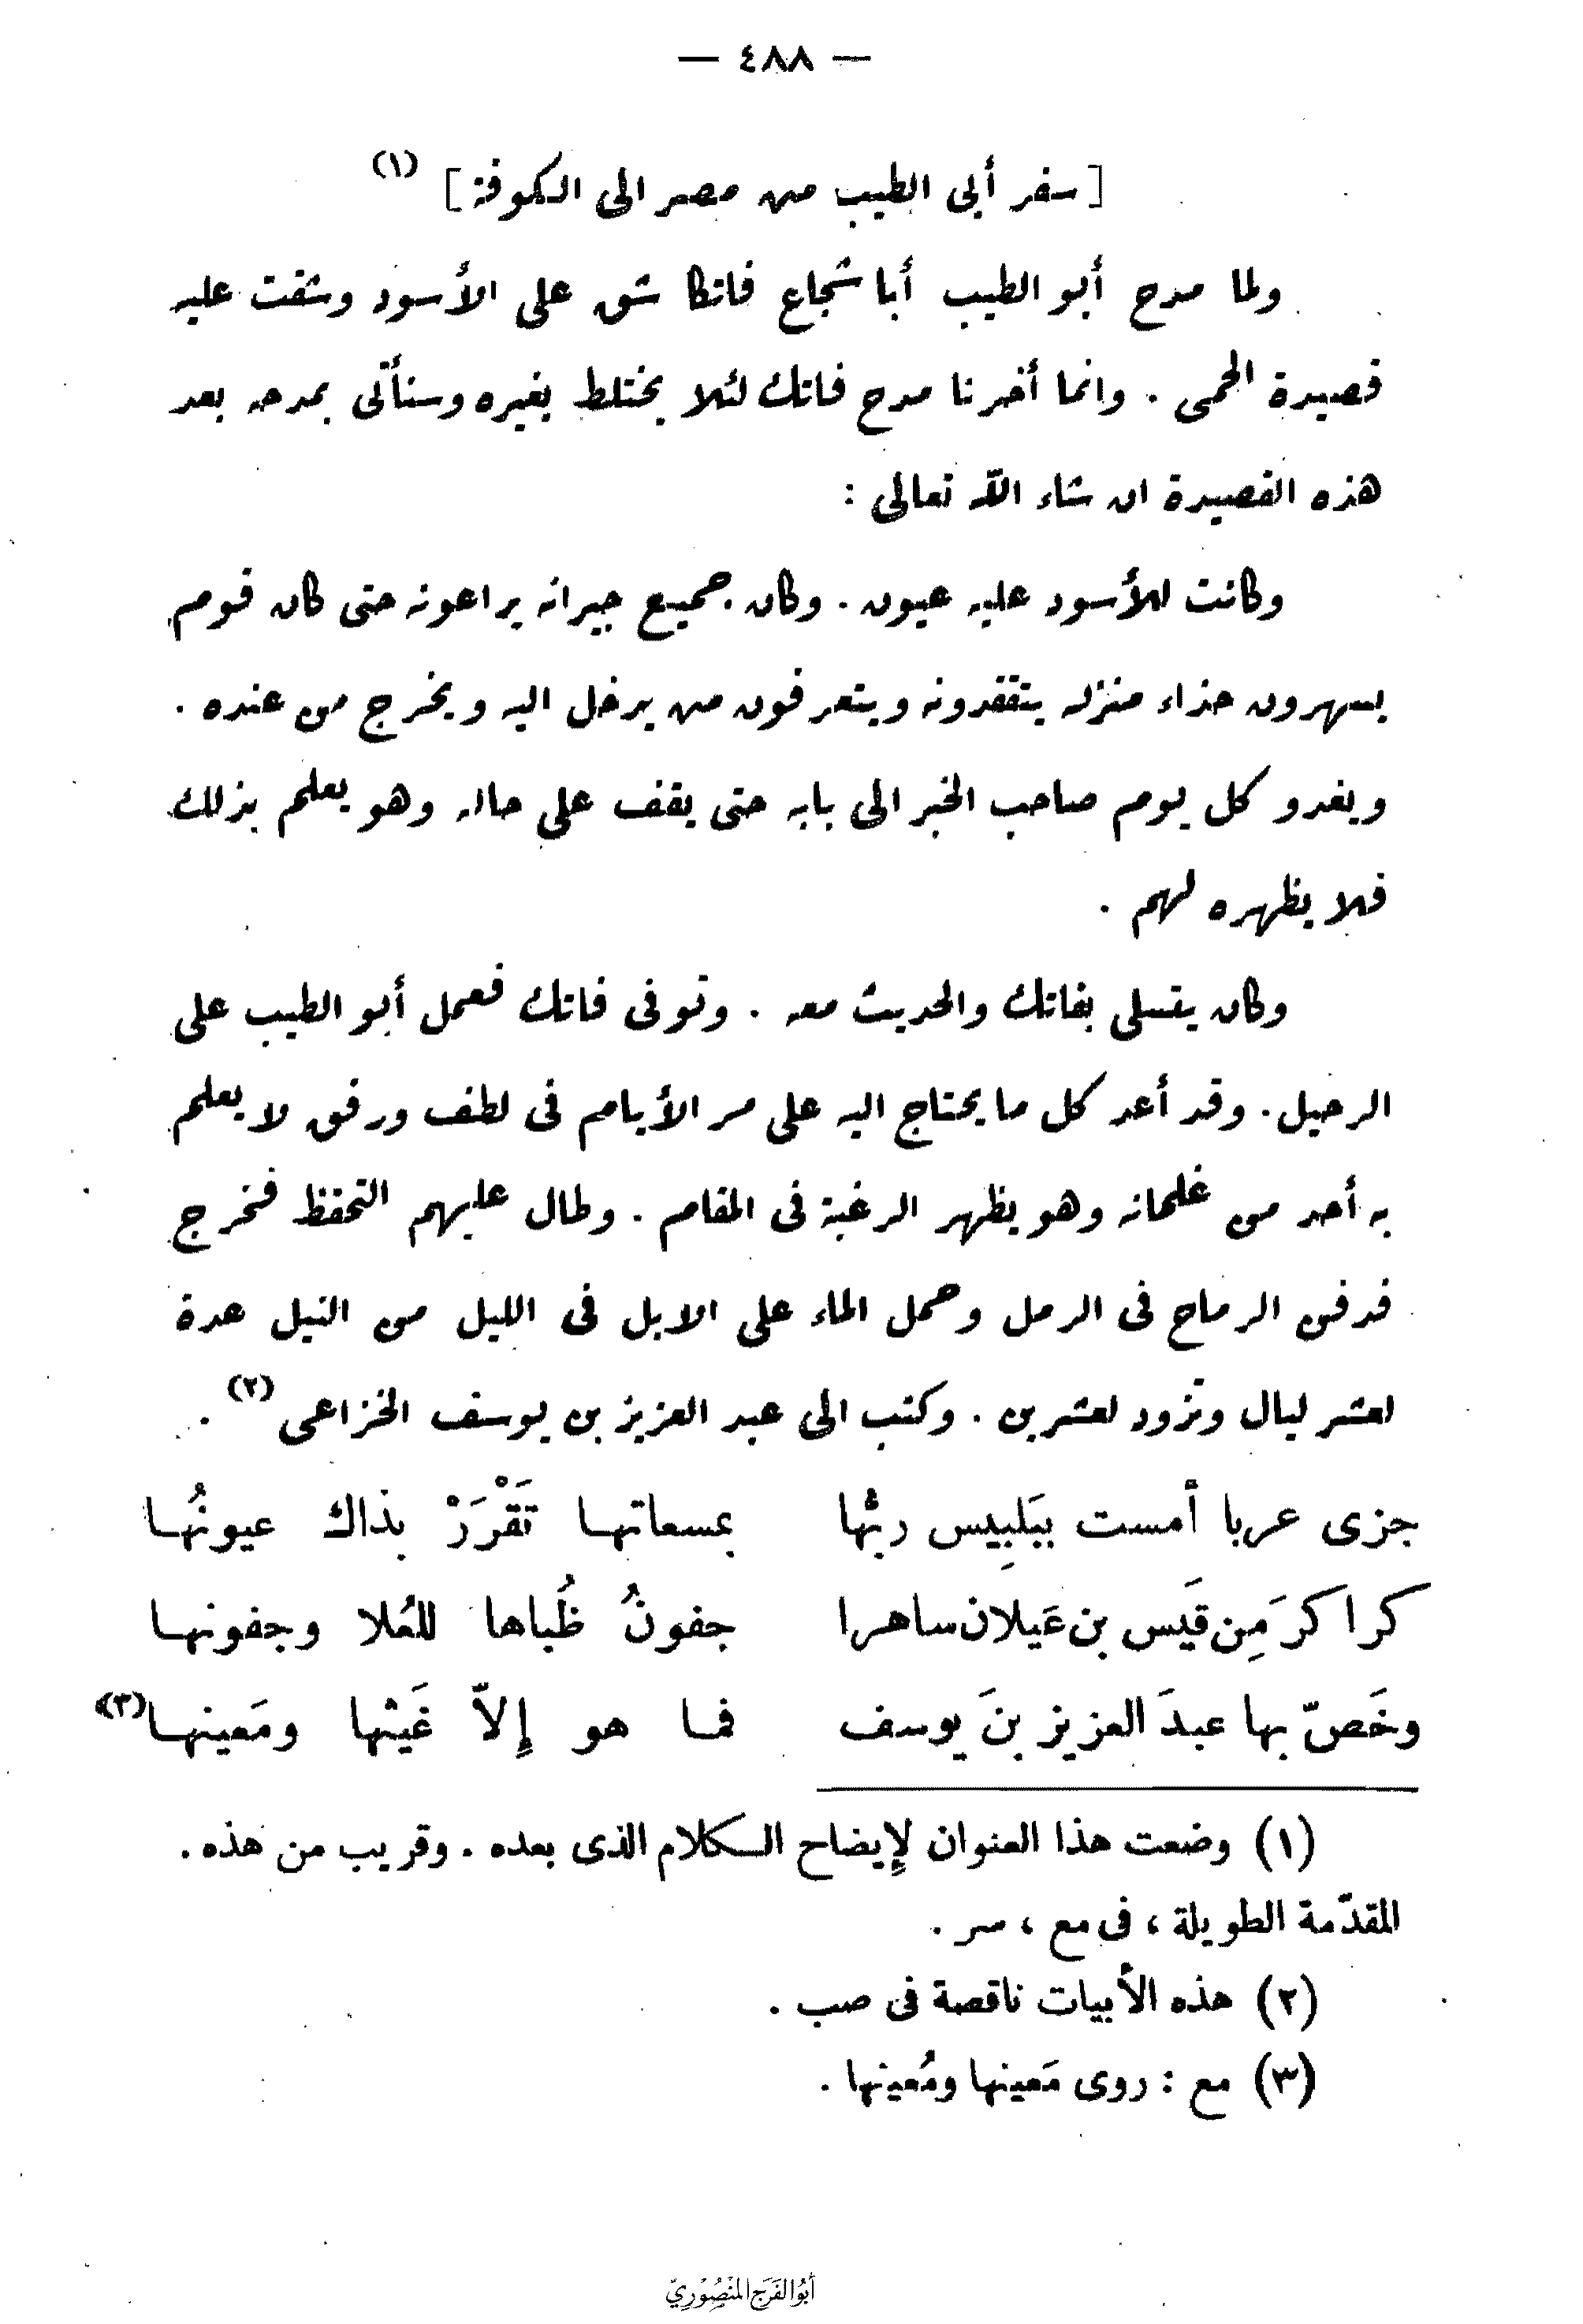 — ٤٨٨ —
[ سفر أبى الطيب من مصر الى الكوفة ] (١)
ولما مدح أبو الطيب أبا شجاع فاتكا شق على الأسود وشقت عليه
قصيدة الحمى . وانما أخرنا مدح فاتك لئلا يختلط بغيره وسنأتى بمدحه بعد
هذه القصيدة ان شاء الله تعالى :
وكانت للأسود عليه عيون . وكان جميع جيرانه يراعونه حتى كان قوم
يسهرون حذاء منزله يتفقدونه ويتعرفون من يدخل اليه ويخرج من عنده .
ويغدو كل يوم صاحب الخبر الى بابه حتى يقف على حاله وهو يعلم بذلك
فلا يظهره لهم .
وكان يتسلى بفاتك والحديث معه . وتوفى فاتك فعمل أبو الطيب على
الرحيل . وقد أعد كل ما يحتاج اليه على مر الأيام فى لطف ورفق لا يعلم
به أحد من غلمانه وهو يظهر الرغبة فى المقام . وطال عليهم التحفظ فخرج
فدفن الرماح فى الرمل وحمل الماء على الابل فى الليل من النيل عدة
لعشر ليال وتزود لعشرين . وكتب الى عبد العزيز بن يوسف الخزاعى (٢) .
جزى عربا أمست ببَلبِيس ربُّها بمسعاتها تَقْرَرْ بذاك عيونُها
كراكرَ مِن قَيس بن عَيلان ساهرا جفونُ ظُباها للعُلا وجفونها
وخَصّ بها عبدَ العزيز بنَ يوسف فما هو إِلاّ غَيثها ومَعينها (٣)
(١) وضعت هذا العنوان لإِيضاح الكلام الذى بعده . وقريب من هذه .
المقدّمة الطويلة ، فى مع ، سر .
(٢) هذه الأبيات ناقصة فى صب .
(٣) مع : روى مَعينها ومُعينها .
أَبُو الفَرَج المَنْصُوْرِيّ